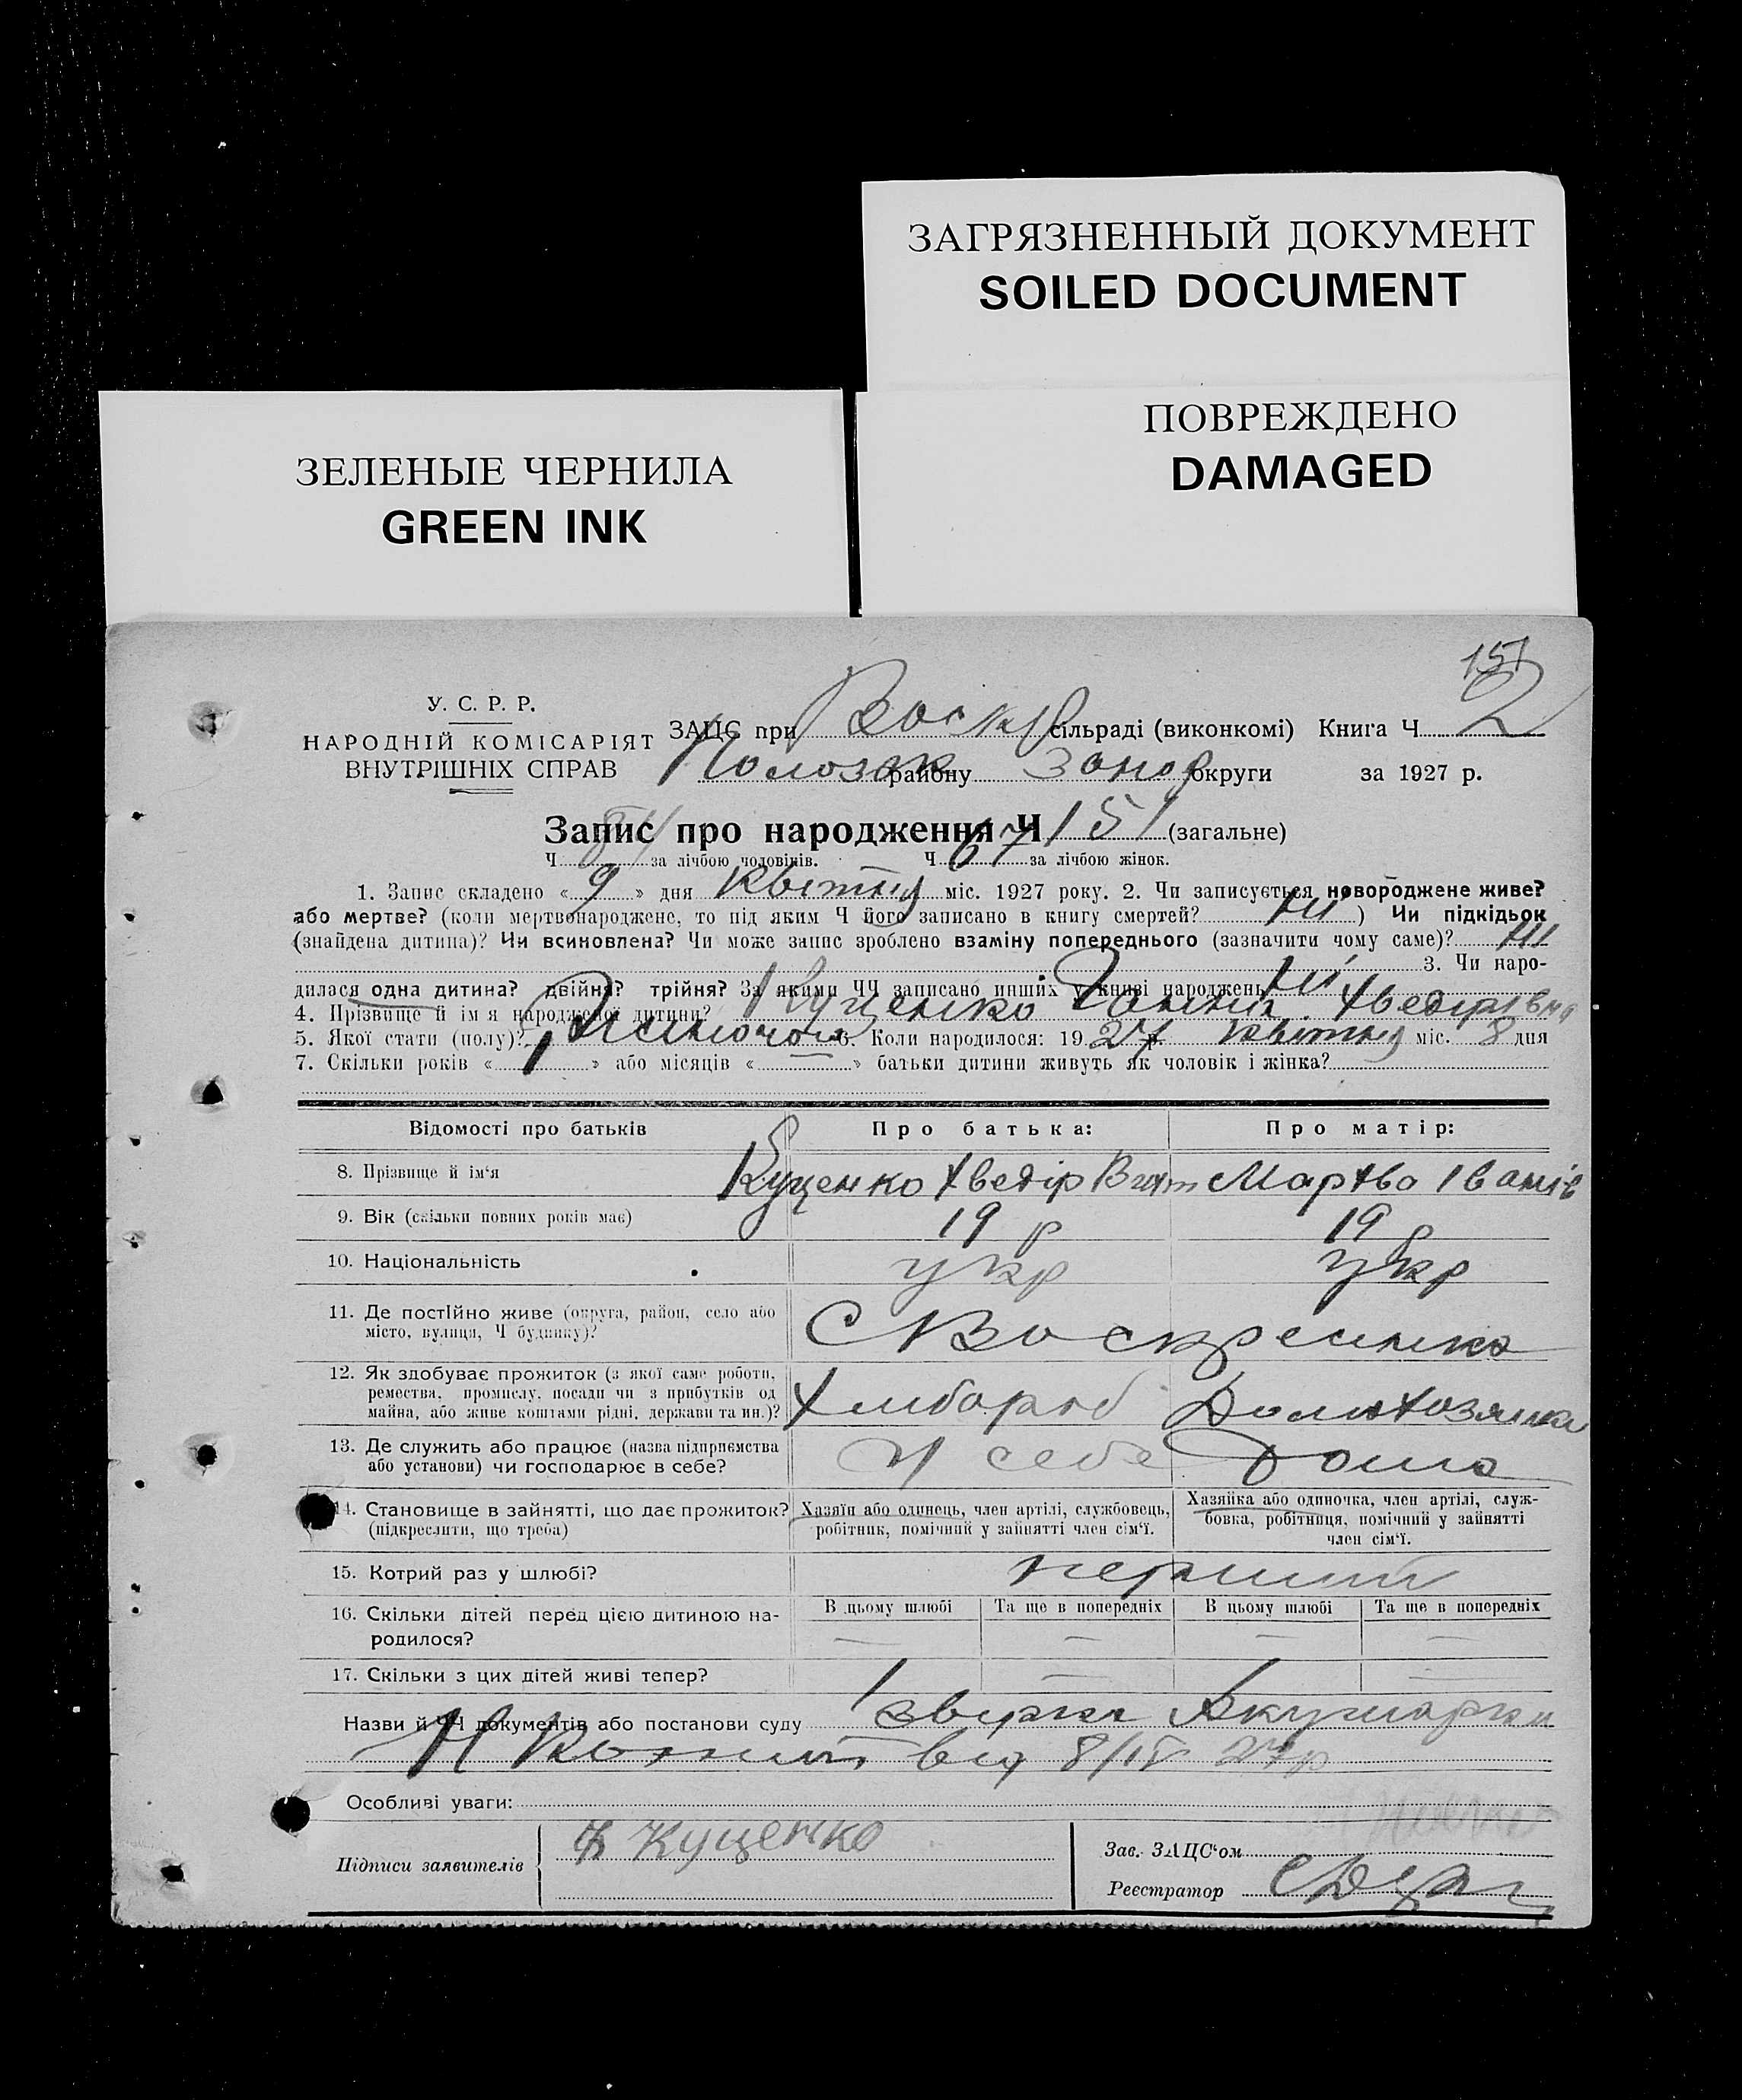 ЗАГРЯЗНЕННЫЙ ДОКУМЕНТ
SOILED DOCUMENT
ПОВРЕЖДЕНО
DAMAGED
ЗЕЛЕНЫЕ ЧЕРНИЛА
GREEN INK
151
У. С. Р. Р.
НАРОДНІЙ КОМІСАРІЯТ
ВНУТРІШНІХ СПРАВ
ЗАЦС при Воскр сільраді (виконкомі) Книга Ч 2
району Запор округи за 1927 р.
Запис про народження Ч 151 (загальне)
Ч 84 за лічбою чоловіків. Ч 67 за лічбою жінок.
1. Запис складено « 9 » дня квітня міс. 1927 року. 2. Чи записується новороджене живе?
або мертве? (коли мертвонароджене, то під яким Ч його записано в книгу смертей? ні ) Чи підкідьок
(знайдена дитина)? Чи всиновлена? Чи може запис зроблено взаміну попереднього (зазначити чому саме)? ні
3. Чи наро-
дилася одна дитина? двійня? трійня? За якими ЧЧ записано инших у книзі народжень ні
4. Прізвище й ім'я народженої дитини? Куценко Ганна Хведірівна
5. Якої стати (полу)? Жіночої 6. Коли народилося: 1927 р. квітня міс. 8 дня
7. Скільки років « 1 » або місяців « — » батьки дитини живуть як чоловік і жінка?
Відомості про батьків Про батька: Про матір:
8. Прізвище й ім'я Куценко Хведір Мархва Іванів
9. Вік (скільки повних років має) 19 р 19 р
10. Національність укр укр
11. Де постійно живе (округа, район, село або
місто, вулиця, Ч будинку)? С Воскресенка
12. Як здобуває прожиток (з якої саме роботи,
ремества, промислу, посади чи з прибутків од
майна, або живе коштами рідні, держави та ин.)? Хлібороб Домохозяйка
13. Де служить або працює (назва підприємства
або установи) чи господарює в себе? У себе Дома
14. Становище в зайнятті, що дає прожиток?
(підкреслити, що треба)
Хазяїн або одинець, член артілі, службовець,
робітник, помічний у зайнятті член сім'ї.
Хазяйка або одиночка, член артілі, служ-
бовка, робітниця, помічний у зайнятті
член сім'ї.
15. Котрий раз у шлюбі? перший
16. Скільки дітей перед цією дитиною на-
родилося?
В цьому шлюбі Та ще в попередніх В цьому шлюбі Та ще в попередніх
— — — —
17. Скільки з цих дітей живі тепер?
Назви й ЧЧ документів або постанови суду Ізвірка Акушарки
від 8/IV 27р
Особливі уваги:
Підписи заявителів Х Куценко
Зав. ЗАЦС'ом
Реєстратор